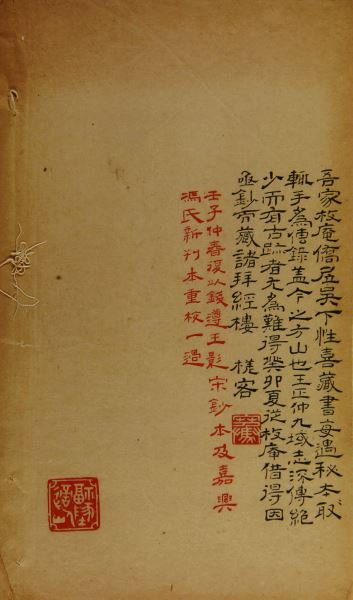 吾家枚庵僑居吳下性喜藏書每遇秘本取
輒手為傳錄蓋今之方山也王正仲九域志流傳絕
少而有古跡者尤為難得癸卯夏從枚庵借得因
亟鈔而藏諸拜經樓 槎客
壬子仲春復以錢遵王影宋鈔本及嘉興
馮氏新刊本重校一過